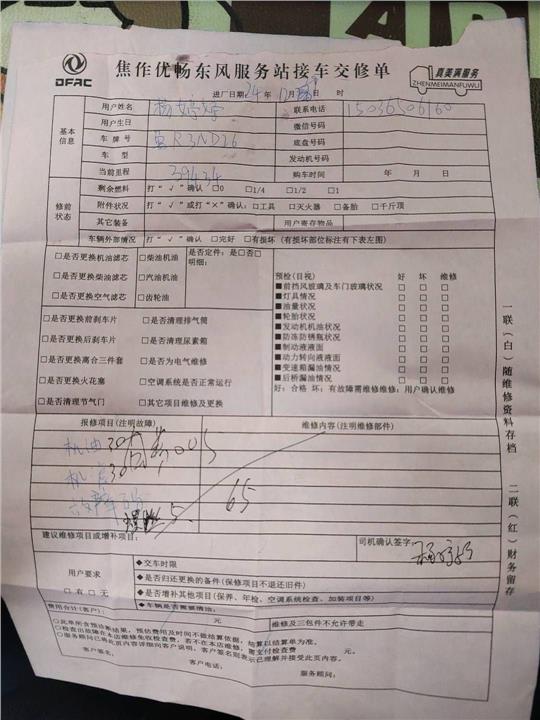 DFAC
焦作优畅东风服务站接车交修单
真美满服务
ZHENMEIMANFUWU
进厂日期24年 月 日 时
基本信息
用户姓名
联系电话 15036506160
用户生日
微信号码
车牌号 R3ND26
底盘号码
车型
发动机号码
当前里程 39434
购车时间 年 月 日
修前状态
剩余燃料 打“√”确认 □0 □1/4 □1/2 □1
附件状况 打“√”或打“×”确认:□工具 □灭火器 □备胎 □千斤顶
其它装备
用户寄存物品
车辆外部情况 打“√”确认 □完好 □有损坏(有损坏部位标注有下表左图)
□是否更换机油滤芯 □柴油机油
□是否更换柴油滤芯 □汽油机油
□是否更换空气滤芯 □齿轮油
是否定件:是□否□
明细:
□是否更换前刹车片 □是否清理排气筒
□是否更换后刹车片 □是否清理尿素箱
□是否更换离合三件套 □是否为电气维修
□是否更换火花塞 □空调系统是否正常运行
□是否清理节气门 □其它项目维修及更换
预检(目视) 好 坏 维修
■前挡风玻璃及车门玻璃状况 □ □ □
■灯具情况 □ □ □
■油量状况 □ □ □
■轮胎状况 □ □ □
■发动机机油状况 □ □ □
■防冻防锈瓶状况 □ □ □
■制动液液面 □ □ □
■动力转向液液面 □ □ □
■变速箱漏油情况 □ □ □
■后桥漏油情况 □ □ □
好:合格 坏:有故障需维修维修:用户确认维修
报修项目(注明故障)
维修内容(注明维修部件)
机油
65
建议维修项目或增补项目:
司机确认签字:
用户要求
□有 □无
◆交车时限
◆是否归还更换的备件(保修项目不退还旧件)
◆是否增补其他项目(保养、年检、空调系统检查、加装项目等)
◆车辆是否需要清洁:
费用合计(客户): 元
维修及三包件不允许带走
○此单所含预诊断结果,预估费用及时间不做结算依据,结算以结算单为准。
○检查出故障在本店维修免收检查费,若不在本店维修,需支付检查费 元。
○服务顾问已将此页内容详细向客户说明,客户签名则表示已理解并接受此页内容。
客户签名: 客户电话: 服务顾问:
一联(白)随维修资料存档
二联(红)财务留存